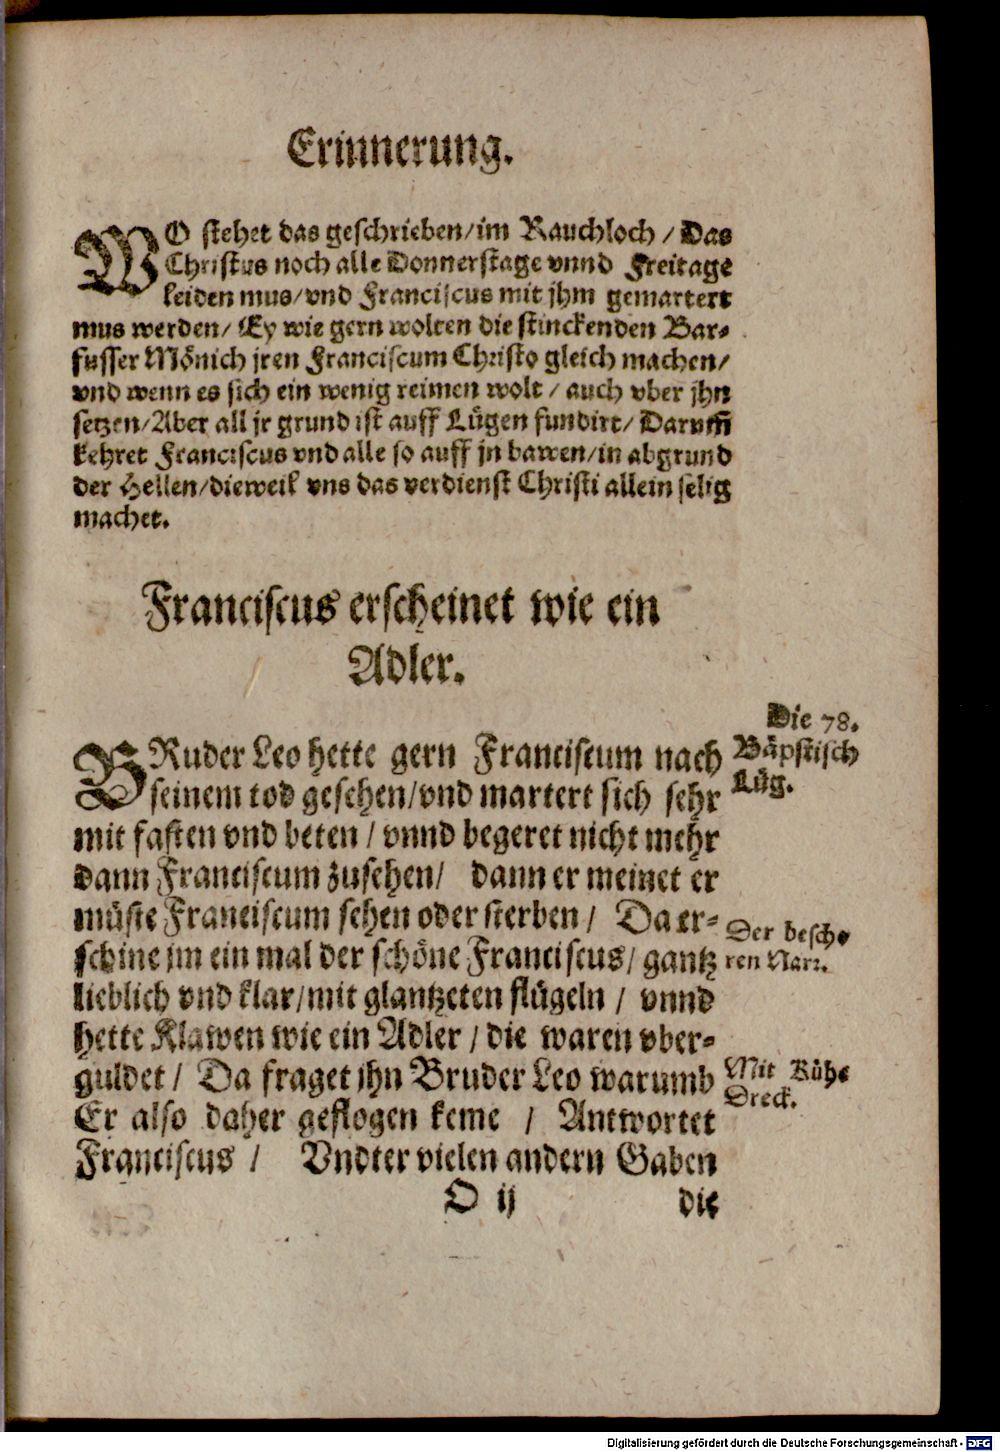 Erinnerung.
WO stehet das geschrieben/im Rauchloch / Das
Christus noch alle Donnerstage vnnd Freitage
leiden mus/vnd Franciscus mit jhm gemartert
mus werden/ Ey wie gern wolten die stinckenden Bar-
fusser Mönich jren Franciscum Christo gleich machen/
vnd wenn es sich ein wenig reimen wolt / auch vber jhn
setzen/Aber all jr grund ist auff Lügen fundirt/ Darum̃
kehret Franciscus vnd alle so auff jn bawen/in abgrund
der Hellen/dieweil vns das verdienst Christi allein selig
machet.
Franciscus erscheinet wie ein
Adler.
BRuder Leo hette gern Franciscum nach
seinem tod gesehen/vnd martert sich sehr
mit fasten vnd beten / vnnd begeret nicht mehr
dann Franciscum zusehen/ dann er meinet er
müste Franciscum sehen oder sterben / Da er-
schine jm ein mal der schöne Franciscus/ gantz
lieblich vnd klar/mit glantzeten flügeln / vnnd
hette Klawen wie ein Adler / die waren vber-
guldet / Da fraget jhn Bruder Leo warumb
Er also daher geflogen keme / Antwortet
Franciscus / Vndter vielen andern Gaben
O ij die
Die 78.
Bäpstisch
Lüg.
Der besch-
ren Narr.
Mit Küh-
Dreck.
Digitalisierung gefördert durch die Deutsche Forschungsgemeinschaft - DFG